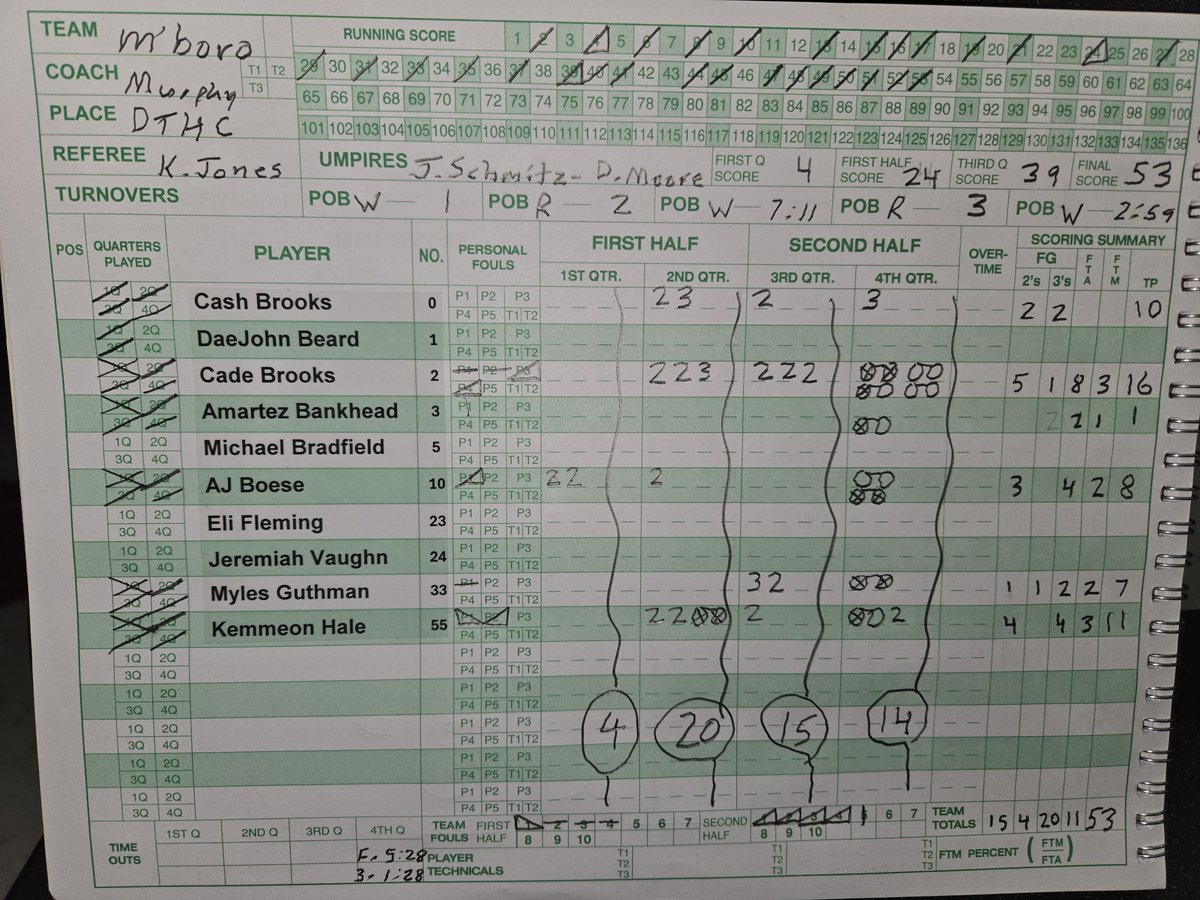 TEAM m'boro RUNNING SCORE 1 2 3 4 5 6 7 8 9 10 11 12 13 14 15 16 17 18 19 20 21 22 23 24 25 26 27 28
COACH Murphy T1 T2 T3 29 30 31 32 33 34 35 36 37 38 39 40 41 42 43 44 45 46 47 48 49 50 51 52 53 54 55 56 57 58 59 60 61 62 63 64
65 66 67 68 69 70 71 72 73 74 75 76 77 78 79 80 81 82 83 84 85 86 87 88 89 90 91 92 93 94 95 96 97 98 99 100
PLACE DTHC 101 102 103 104 105 106 107 108 109 110 111 112 113 114 115 116 117 118 119 120 121 122 123 124 125 126 127 128 129 130 131 132 133 134 135 136
REFEREE K. Jones UMPIRES J. Schmitz - D. Moore FIRST Q SCORE 4 FIRST HALF SCORE 24 THIRD Q SCORE 39 FINAL SCORE 53
TURNOVERS POB W — 1 POB R — 2 POB W — 7:11 POB R — 3 POB W — 2:59
POS QUARTERS PLAYED PLAYER NO. PERSONAL FOULS FIRST HALF SECOND HALF OVER-TIME SCORING SUMMARY
FG FTA FTM
1ST QTR. 2ND QTR. 3RD QTR. 4TH QTR. 2's 3's TP
1Q 2Q Cash Brooks 0 P1 P2 P3 23 2 3 2 2 10
3Q 4Q P4 P5 T1 T2
1Q 2Q DaeJohn Beard 1 P1 P2 P3
3Q 4Q P4 P5 T1 T2
1Q 2Q Cade Brooks 2 P1 P2 P3 223 222 5 1 8 3 16
3Q 4Q P4 P5 T1 T2
1Q 2Q Amartez Bankhead 3 P1 P2 P3 2 1 1
3Q 4Q P4 P5 T1 T2
1Q 2Q Michael Bradfield 5 P1 P2 P3
3Q 4Q P4 P5 T1 T2
1Q 2Q AJ Boese 10 P1 P2 P3 22 2 3 4 2 8
3Q 4Q P4 P5 T1 T2
1Q 2Q Eli Fleming 23 P1 P2 P3
3Q 4Q P4 P5 T1 T2
1Q 2Q Jeremiah Vaughn 24 P1 P2 P3
3Q 4Q P4 P5 T1 T2
1Q 2Q Myles Guthman 33 P1 P2 P3 32 1 1 2 2 7
3Q 4Q P4 P5 T1 T2
1Q 2Q Kemmeon Hale 55 P1 P2 P3 22 2 2 4 4 3 11
3Q 4Q P4 P5 T1 T2
1Q 2Q P1 P2 P3
3Q 4Q P4 P5 T1 T2
1Q 2Q P1 P2 P3
3Q 4Q P4 P5 T1 T2
1Q 2Q P1 P2 P3 4 20 15 14
3Q 4Q P4 P5 T1 T2
1Q 2Q P1 P2 P3
3Q 4Q P4 P5 T1 T2
1Q 2Q P1 P2 P3
3Q 4Q P4 P5 T1 T2
TIME OUTS 1ST Q 2ND Q 3RD Q 4TH Q TEAM FOULS FIRST HALF 1 2 3 4 5 6 7 8 9 10 SECOND HALF 1 2 3 4 5 6 7 8 9 10 TEAM TOTALS 15 4 20 11 53
F. 5:28 PLAYER TECHNICALS T1 T2 T3 T1 T2 T3 T1 T2 T3 FTM PERCENT (FTM/FTA)
3- 1:28